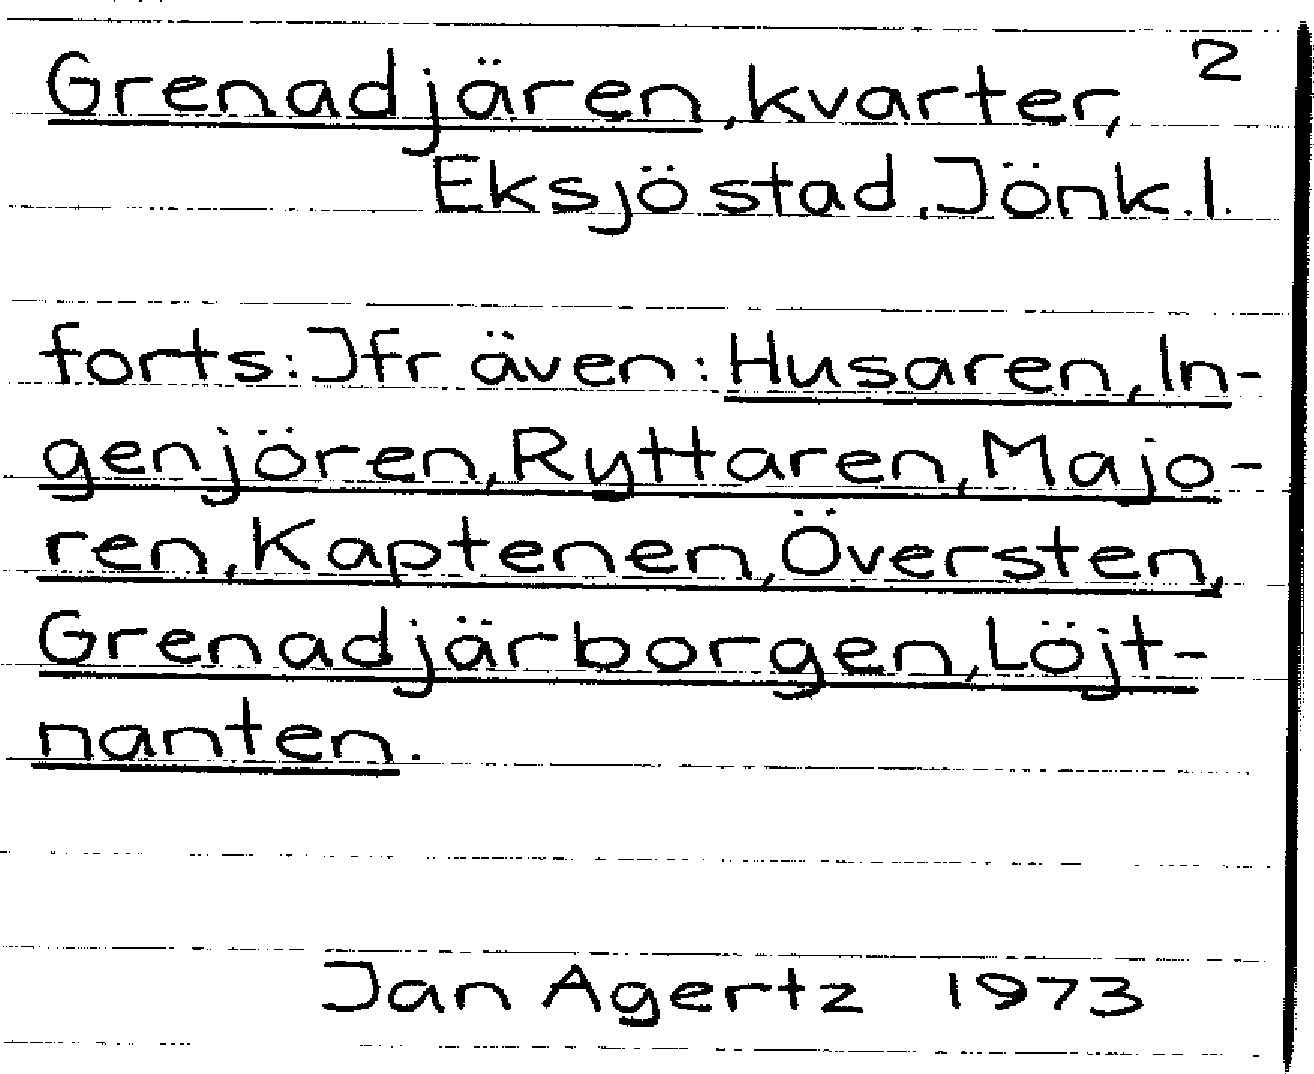 Grenadjären, kvarter, 2
Eksjö stad, Jönk. l.
forts: Jfr även: Husaren, In-
genjören, Ryttaren, Majo-
ren, Kaptenen, Översten,
Grenadjärborgen, Löjt-
nanten.
Jan Agertz 1973